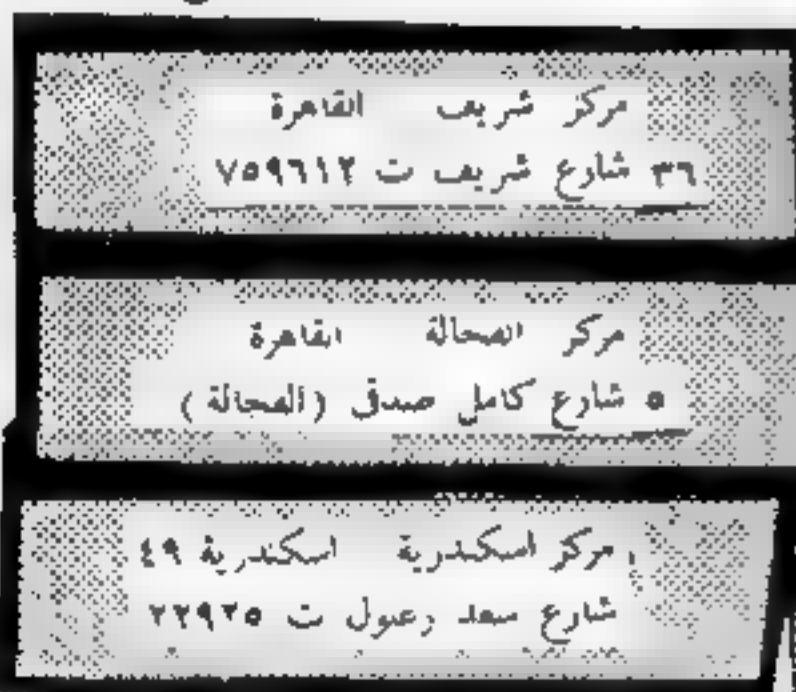 مركز شريف القاهرة
٣٦ شارع شريف ت ٧٥٩٦١٢
مركز الفجالة القاهرة
٥ شارع كامل صدقى (الفجالة)
مركز اسكندرية اسكندرية ٤٩
شارع سعد زغلول ت ٢٢٩٢٥